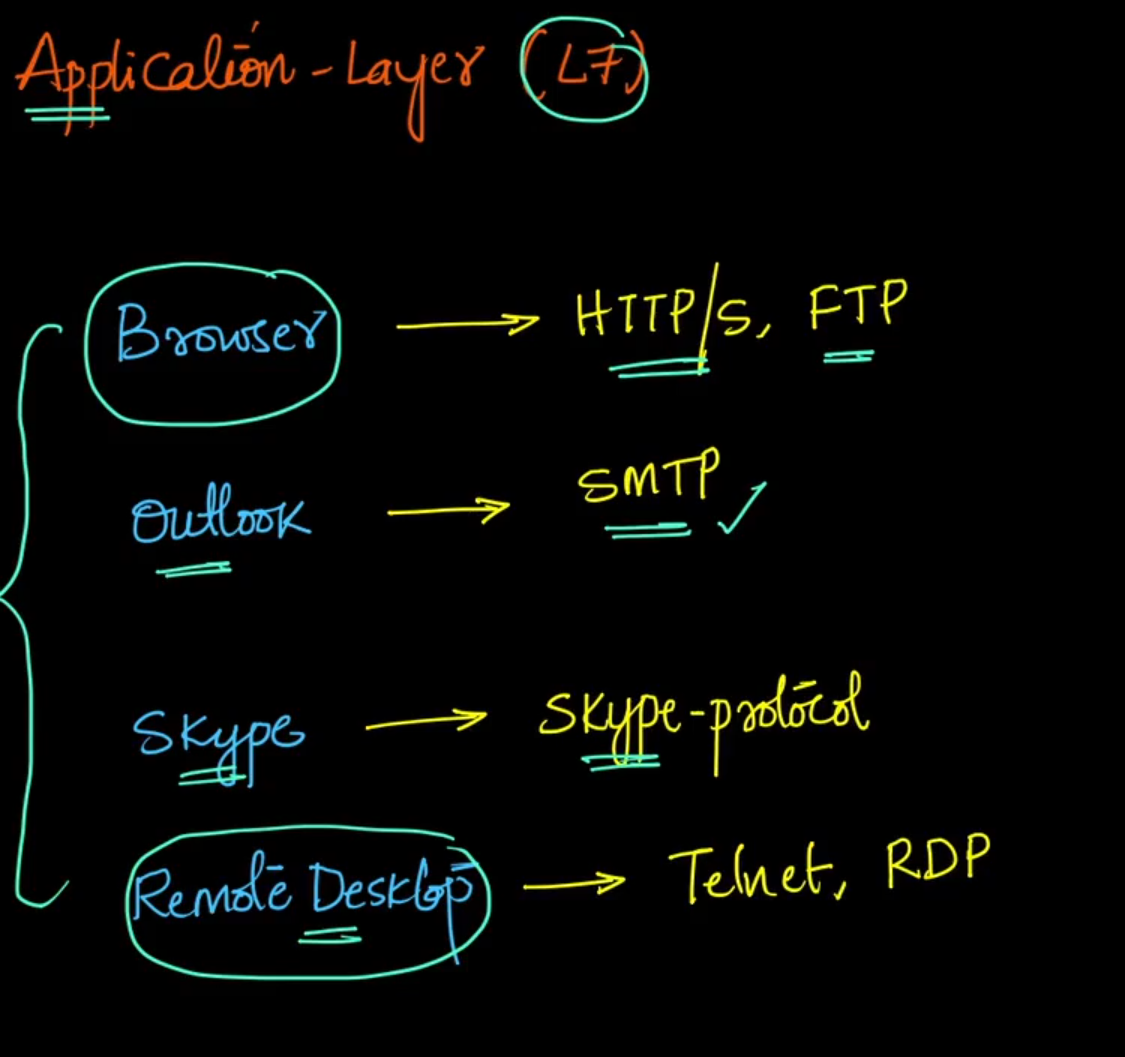 Application - Layer (L7)
Browser → HTTP/S, FTP
Outlook → SMTP ✓
Skype → Skype-protocol
Remote Desktop → Telnet, RDP